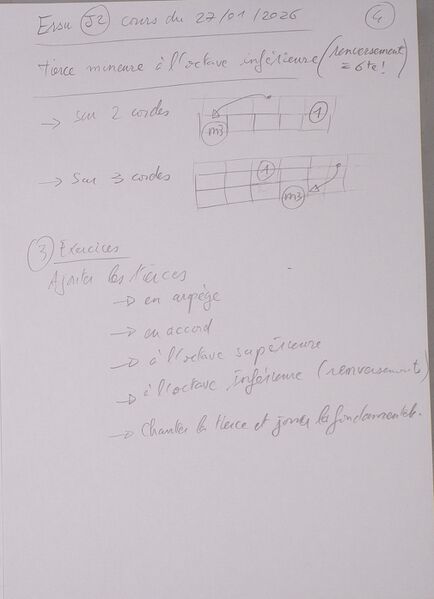 Essu J2 cours du 27/01/2026
4
tierce mineure à l'octave inférieure (renversement
= 6te!)
→ sur 2 cordes
1
m3
→ Sur 3 cordes
1
m3
3 Exercices
Ajouter les tierces
→ en arpège
→ en accord
→ à l'octave supérieure
→ à l'octave inférieure (renversement)
→ Chanter la tierce et jouer la fondamentale.